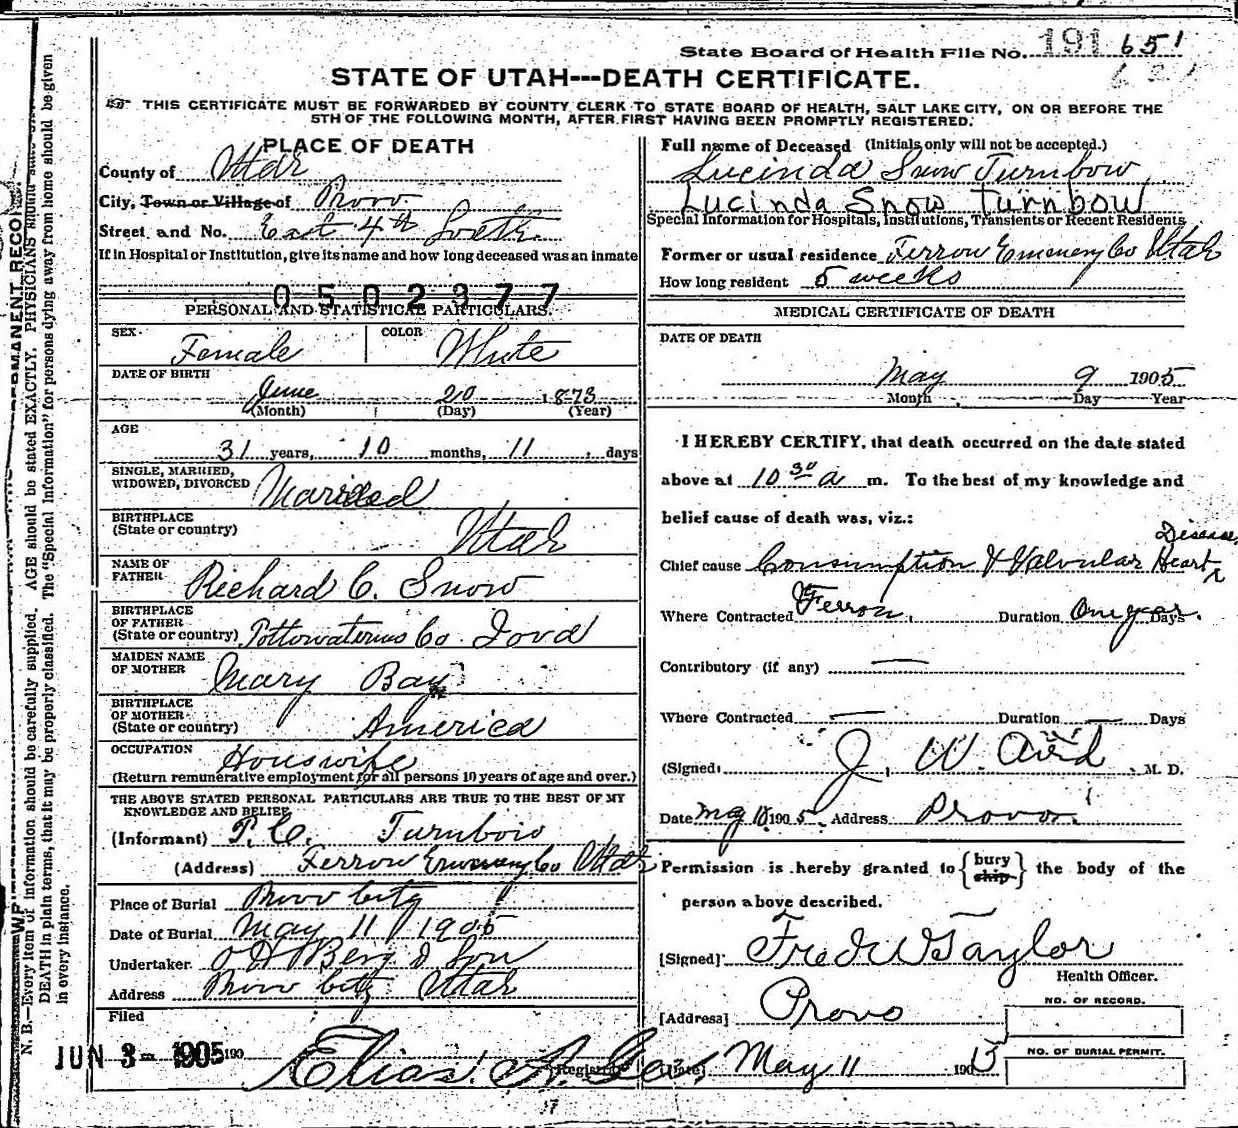 State Board of Health File No. 191 651
STATE OF UTAH---DEATH CERTIFICATE.
THIS CERTIFICATE MUST BE FORWARDED BY COUNTY CLERK TO STATE BOARD OF HEALTH, SALT LAKE CITY, ON OR BEFORE THE
5TH OF THE FOLLOWING MONTH, AFTER FIRST HAVING BEEN PROMPTLY REGISTERED.
PLACE OF DEATH
County of Utah
City, Town or Village of Provo
Street and No. East 4th South
If in Hospital or Institution, give its name and how long deceased was an inmate
0502377
PERSONAL AND STATISTICAL PARTICULARS.
SEX Female COLOR White
DATE OF BIRTH
June 20 1873
(Month) (Day) (Year)
AGE
31 years, 10 months, 11 days
SINGLE, MARRIED,
WIDOWED, DIVORCED Married
BIRTHPLACE
(State or country) Utah
NAME OF
FATHER Richard C. Snow
BIRTHPLACE
OF FATHER
(State or country) Pottowatamus Co. Iowa
MAIDEN NAME
OF MOTHER Mary Bay
BIRTHPLACE
OF MOTHER
(State or country) America
OCCUPATION Houswife
(Return remunerative employment for all persons 10 years of age and over.)
THE ABOVE STATED PERSONAL PARTICULARS ARE TRUE TO THE BEST OF MY
KNOWLEDGE AND BELIEF
(Informant) P. C. Turnbow
(Address) Ferrow Emmery Co Utah
Place of Burial Provo City
Date of Burial May 11 1905
Undertaker O H Berg & Son
Address Provo City Utah
Filed
JUN 3- 1905 190
Elias A. Gee
Registrar
Full name of Deceased (Initials only will not be accepted.)
Lucinda Snow Turnbow
Lucinda Snow Turnbow
Special Information for Hospitals, Institutions, Transients or Recent Residents
Former or usual residence Ferrow Emenery Co Utah
How long resident 5 weeks
MEDICAL CERTIFICATE OF DEATH
DATE OF DEATH
May 9 1905
Month Day Year
I HEREBY CERTIFY, that death occurred on the date stated
above at 10 30 a m. To the best of my knowledge and
belief cause of death was, viz.:
Chief cause Consumption & Valvular Heart Disease
Where Contracted Ferron. Duration One year Days.
Contributory (if any)
Where Contracted Duration Days
(Signed) J. W. Aird M. D.
Date 1905 Address Provo.
Permission is hereby granted to {bury ship} the body of the
person above described.
[Signed] Fred W Taylor
Health Officer.
[Address] Provo
NO. OF RECORD.
[Date] May 11 1905
NO. OF BURIAL PERMIT.
N. B.—Every item of information should be carefully supplied. AGE should be stated EXACTLY. PHYSICIANS should state
DEATH in plain terms, that it may be properly classified. The "Special Information" for persons dying away from home should be given
in every instance.